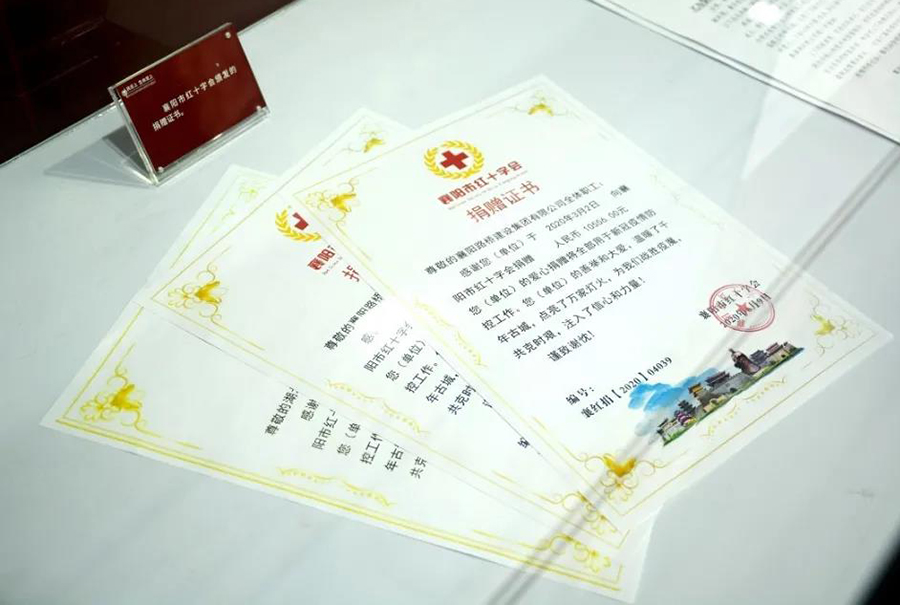 襄阳市红十字会颁发的
捐赠证书。
襄阳市红十字会
捐赠证书
尊敬的襄阳路桥建设集团有限公司全体职工：
感谢您（单位）于 2020年3月2日 向襄
阳市红十字会捐赠 人民币 10556.00元
您（单位）的爱心捐赠将全部用于新冠疫情防
控工作。您（单位）的善举和大爱，温暖了千
年古城，点亮了万家灯火，为我们战胜疫魔，
共克时艰，注入了信心和力量！
谨致谢忱！
襄阳市红十字会
编号：
襄红捐【2020】04039
尊敬的襄阳路桥
感
阳市红十字
您（单位）
控工作。
年古城，
共克时
编
尊敬的湖
感谢
阳市红
您（单
控工作
年古
共克